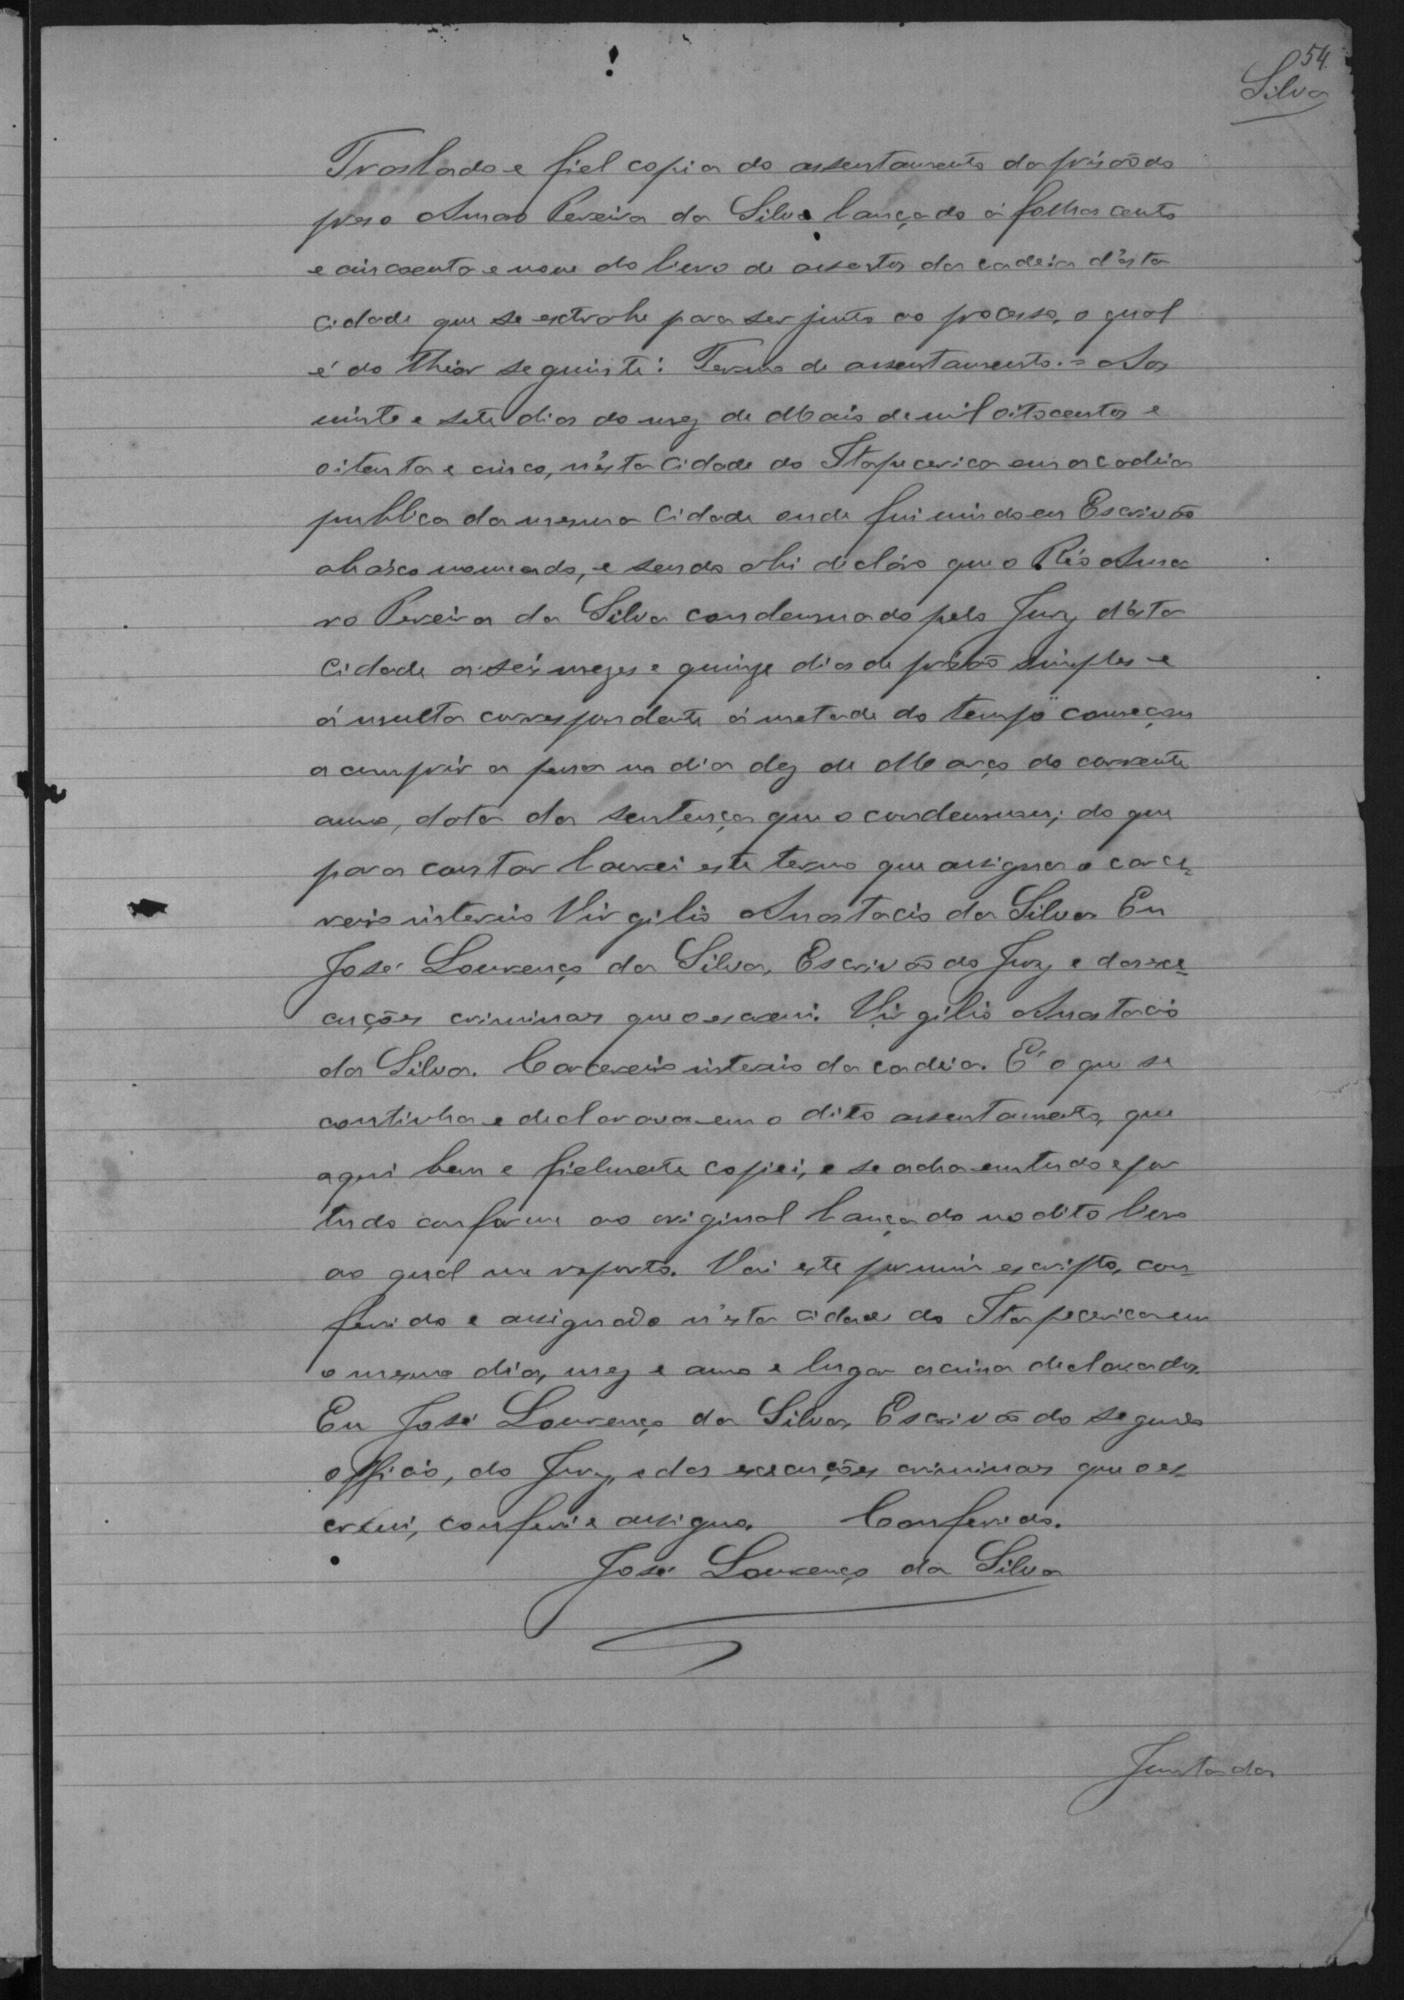 54.
Silva
Traslado e fiel copia do assentamento da prisão do
preso Amaro Pereira da Silva lançado á folhas cento
e cincoenta e nove do livro de assentos da cadeia d'esta
cidade que se extrahe para ser junto ao processo, o qual
é do theôr seguinte: Termo de assentamento. = Aos
vinte e sete dias do mez de Maio de mil oitocentos e
oitenta e cinco, n'esta Cidade do Itapecerica em a cadeia
publica da mesma Cidade onde fui vindo eu Escrivão
abaixo nomeado, e sendo ahi declaro que o Réo Ama-
ro Pereira da Silva condemnado pelo Jury d'esta
Cidade a seis mezes e quinze dias de prisão simples e
á multa correspondente á metade do tempo começou
a cumprir a pena no dia dez de Março do corrente
anno, data da sentença que o condemnou; do que
para constar lavrei este termo que assigna o carce-
reiro interino Virgilio Anastacio da Silva. Eu
José Lourenço da Silva, Escrivão do Jury e das exe-
cuções criminaes que o escrevi. Virgilio Anastacio
da Silva. Carcereiro interino da cadeia. É o que se
continha e declarava em o dito assentamento, que
aqui bem e fielmente copiei, e se acha em tudo e por
tudo conforme ao original lançado no dito livro
ao qual me reporto. Vai este por mim escripto, con-
ferido e assignado n'esta cidade do Itapecerica em
o mesmo dia, mez e anno e lugar acima declarados.
Eu José Lourenço da Silva, Escrivão do segundo
officio, do Jury, e das execuções criminaes que o es-
crevi, conferi e assigno. Conferido.
José Lourenço da Silva
Juntada